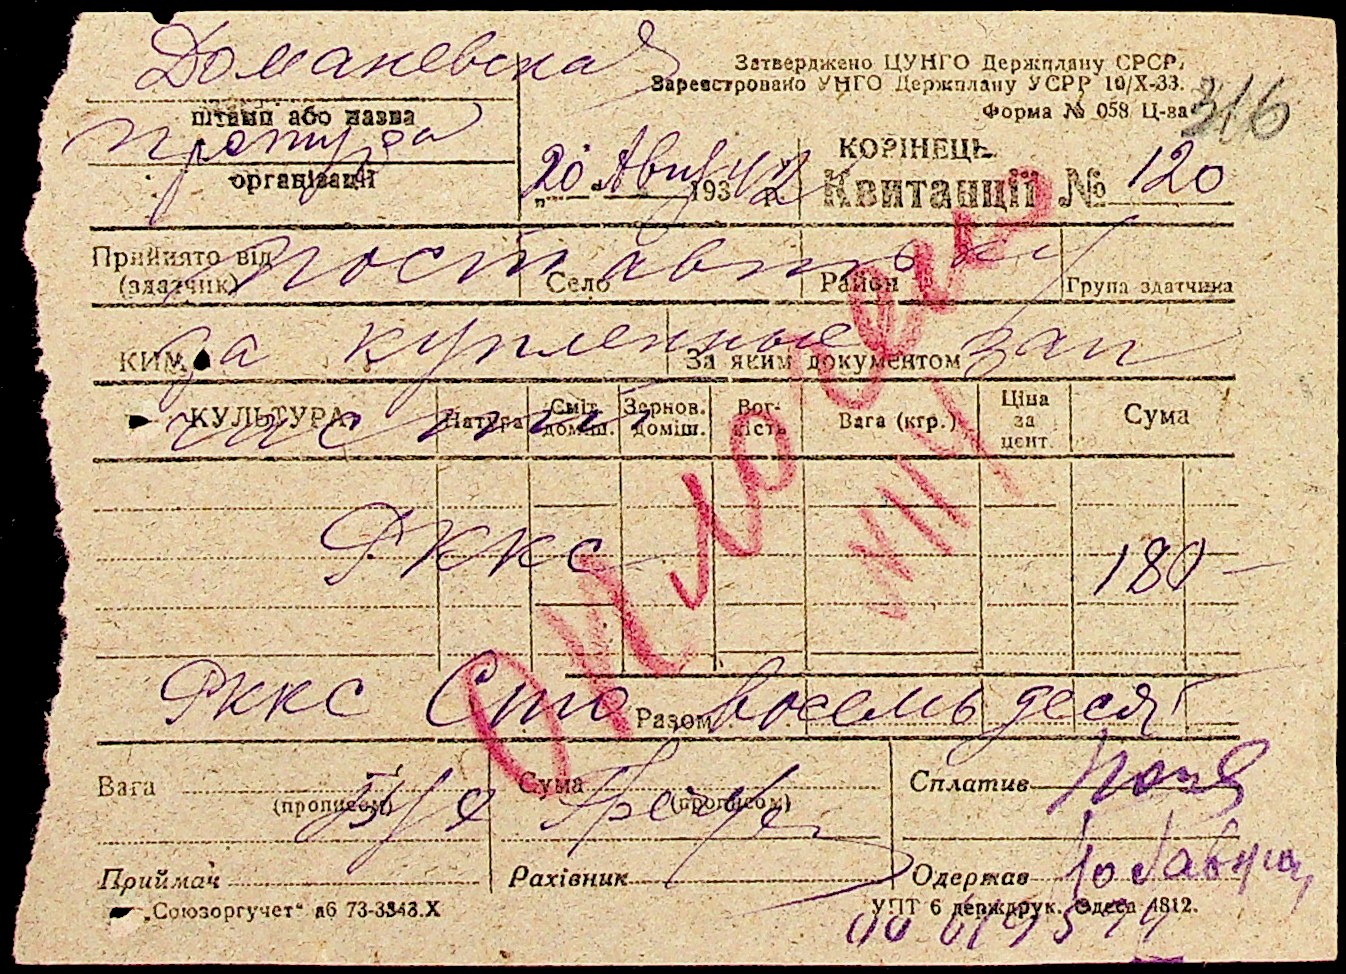 Домакевская
Затверджено ЦУНГО Держплану СРСР,
Зареєстровано УНГО Держплану УСРР 10/X-33.
Форма № 058 Ц-за
316
штамп або назва
претура
організації
КОРІНЕЦЬ
„20“ Авг 193 42 р.
Квитанції № 120
Прийнято від
(здатчик)
Село
Район
Група здатчика
поставщику
за купленные зап
КИМ
За яким документом
части
КУЛЬТУРА
Натура
Сміт. доміш.
Зернов. доміш.
Вогкість
Вага (кгр.)
Ціна за цент.
Сума
РККС
180 —
РККС Сто восемьдесят
Разом
Вага
(прописом)
Сума
(прописом)
Сплатив
Приймач
Рахівник
Одержав
„Союзоргучет“ дб 73-3343.X
УПТ 6 держдрук. Одеса 4812.